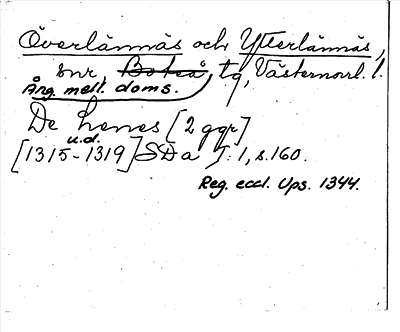 Överlännäs och Ytterlännäs,
snr, Boteå, tg, Västernorrl. l.
Ång. mell. doms.
De Lenes [2 ggr]
u.d.
[1315-1319] SDa I:1, s. 160.
Reg. eccl. Ups. 1344.